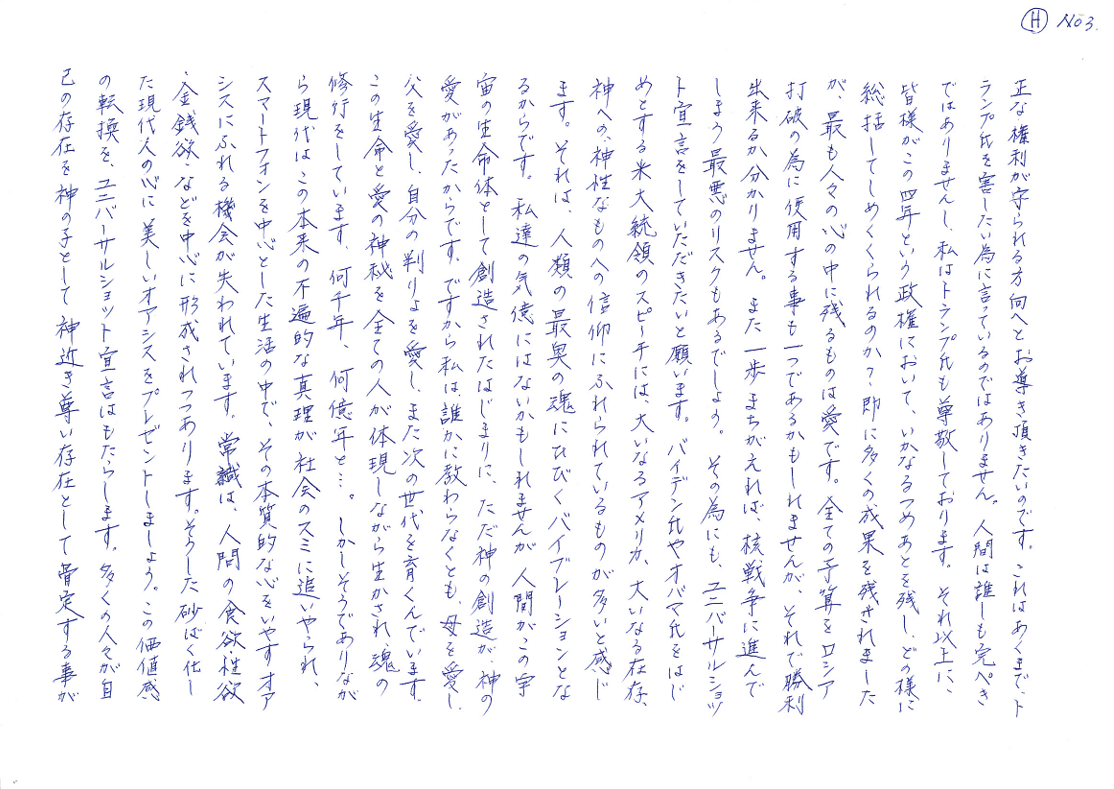 Ⓗ No3.
正な権利が守られる方向へとお導き頂きたいのです。これはあくまで、ト
ランプ氏を害したい為に言っているのではありません。人間は誰しも完ぺき
ではありませんし、私はトランプ氏も尊敬しております。それ以上に、
皆様がこの四年という政権において、いかなるつめあとを残し、どの様に
総括してしめくくられるのか？即に多くの成果を残されました
が、最も人々の心の中に残るものは愛です。全ての予算をロシア
打破の為に使用する事も一つであるかもしれませんが、それで勝利
出来るか分かりません。また一歩まちがえれば、核戦争に進んで
しまう最悪のリスクもあるでしょう。その為にも、ユニバーサルショッ
ト宣言をしていただきたいと願います。バイデン氏やオバマ氏をはじ
めとする米大統領のスピーチには、大いなるアメリカ、大いなる存在、
神への、神性なものへの信仰にふれられているものが多いと感じ
ます。それは、人類の最奥の魂にひびくバイブレーションとな
るからです。私達の気億にはないかもしれませんが、人間がこの宇
宙の生命体として創造されたはじまりに、ただ神の創造が、神の
愛があったからです。ですから私は、誰かに教わらなくとも、母を愛し、
父を愛し、自分の判りよを愛し、また次の世代を育くんでいます。
この生命と愛の神秘を全ての人が体現しながら生かされ、魂の
修行をしています。何千年、何億年と…。しかしそうでありなが
ら現代はこの本来の不遍的な真理が社会のスミに追いやられ、
スマートフォンを中心とした生活の中で、その本質的な心をいやすオア
シスにふれる機会が失われています。常識は、人間の食欲、性欲
、金銭欲、などを中心に形成されつつあります。そうした砂ばく化し
た現代人の心に美しいオアシスをプレゼントしましょう。この価値感
の転換を、ユニバーサルショット宣言はもたらします。多くの人々が自
己の存在を神の子として神近き尊い存在として肯定する事が